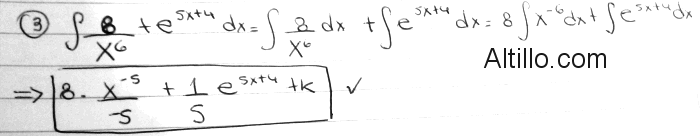 ③ ∫ 8/x⁶ + e^(5x+4) dx = ∫ 8/x⁶ dx + ∫ e^(5x+4) dx = 8 ∫ x⁻⁶ dx + ∫ e^(5x+4) dx
Altillo.com
⇒ 8 · x⁻⁵/-5 + 1/5 e^(5x+4) + k ✓